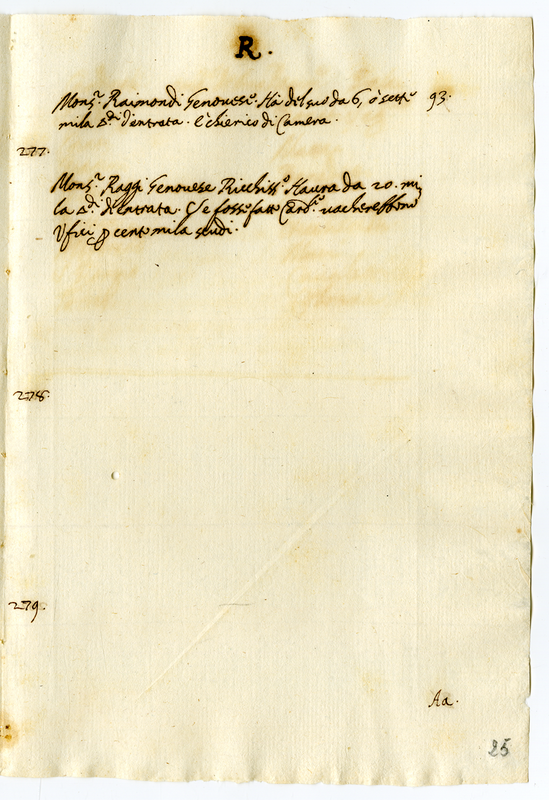 R.
Mons.r Raimondi Genovese. Hà del suo da 6, ò sette 93.
mila Δ.di d'entrata. è chierico di Camera.
277.
Mons.r Raggi Genouese Ricchiss.o Haurà da 20. mi
la Δ.di d'entrata. Se fosse fatto Card.le uacherebbono
Ufici p cento mila scudi.
278.
279.
Aa.
25